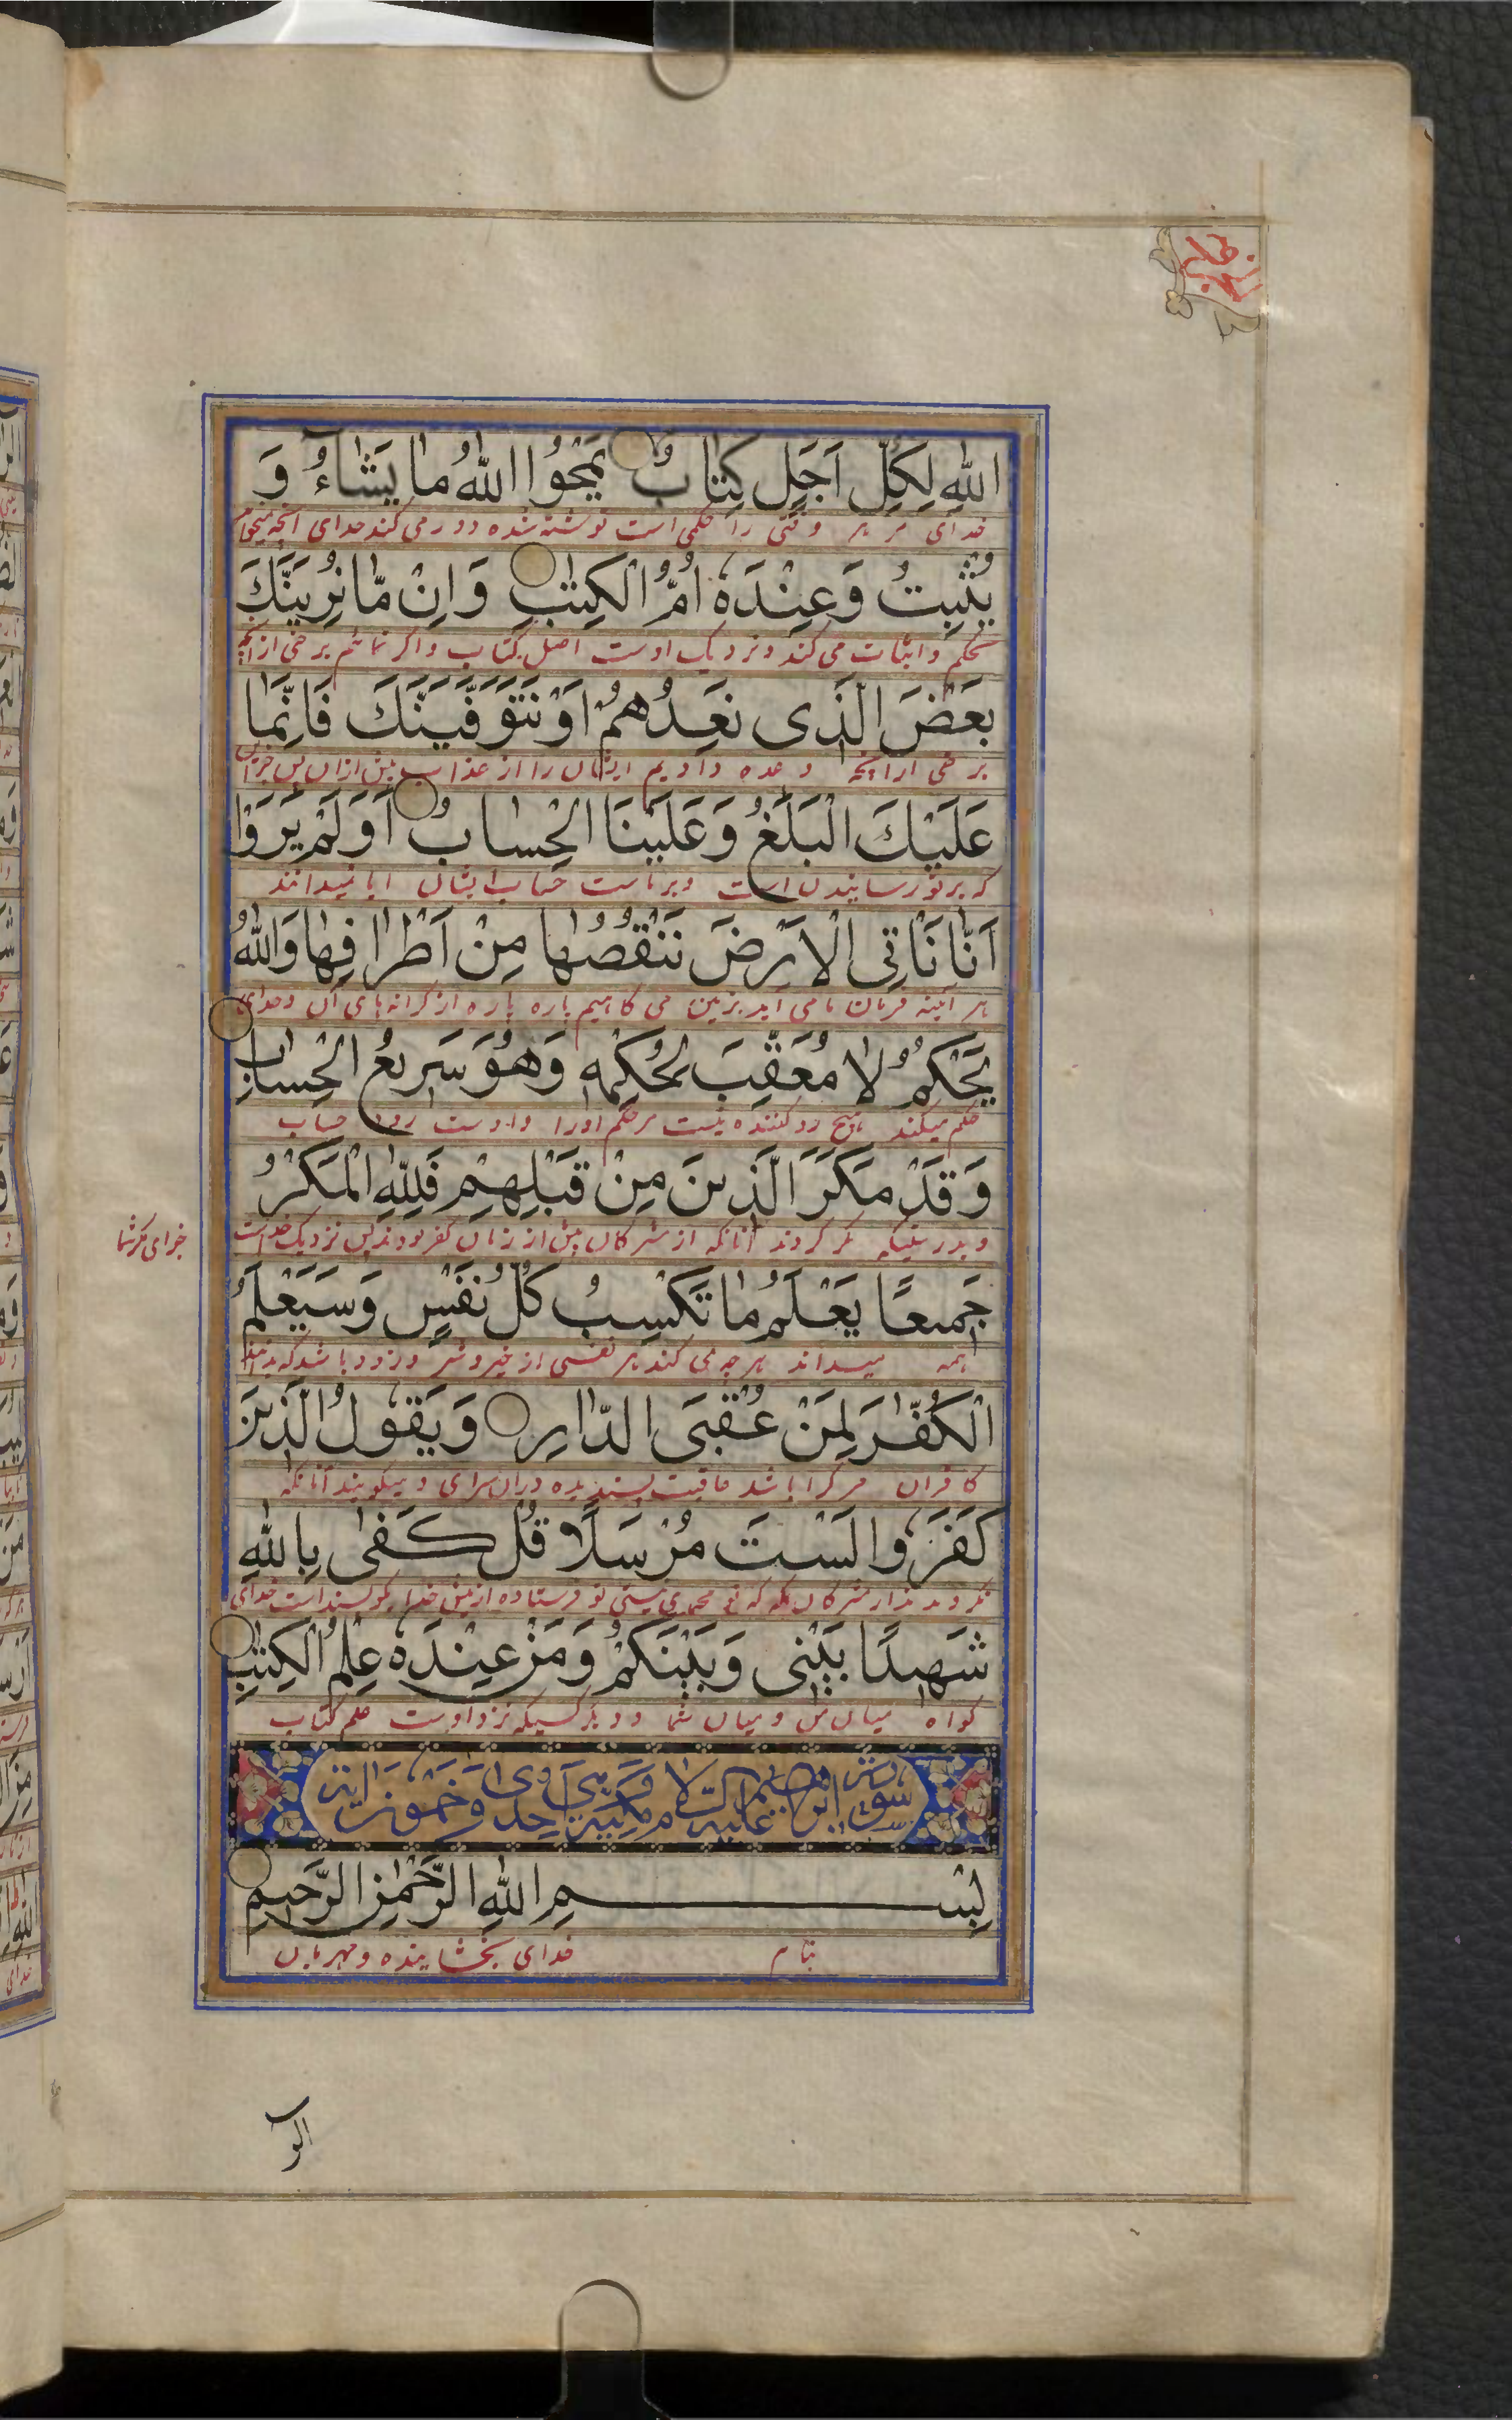 اللهِ لِكُلِّ اَجَلٍ كِتابٌ يَمْحُوا اللهُ ما يَشاءُ وَ
خدای مر هر وقتی را حکمی است نوشته شده دور می کند خدای آنچه میخواهد
يُثْبِتُ وَعِنْدَهُ اُمُّ الْكِتٰبِ وَاِنْ مّا نُرِيَنَّكَ
واثبات می کند ونزدیک اوست اصل کتاب واگر نمائیم برخی ازآنچه
بَعْضَ الَّذى نَعِدُهُمْ اَوْ نَتَوَفَّيَنَّكَ فَاِنَّما
برخی ازآنچه وعده دادیم ایشان را از عذاب پیش ازان پس
عَلَيْكَ الْبَلٰغُ وَعَلَيْنَا الْحِسابُ اَوَلَمْ يَرَوْا
که برتو رسانیدن است وبرماست حساب ایشان ایا نمیدانند
اَنّا نَاْتِى الْاَرْضَ نَنْقُصُها مِنْ اَطْرافِها وَاللهُ
هر آئینه فرمان ما می آید بزمین می کاهیم پاره پاره از کرانه های آن وخدای
يَحْكُمُ لا مُعَقِّبَ لِحُكْمِهٖ وَهُوَ سَريعُ الْحِسابِ
حکم میکند هیچ رد کننده نیست مرحکم اورا واوست زود حساب
وَقَدْ مَكَرَ الَّذينَ مِنْ قَبْلِهِمْ فَلِلّٰهِ الْمَكْرُ
وبدرستیکه مکر کردند آنانکه از مشرکان پیش از زمان کفر بودند پس نزدیک خداست
جَميعًا يَعْلَمُ ما تَكْسِبُ كُلُّ نَفْسٍ وَسَيَعْلَمُ
همه میداند هرچه می کند هر نفسی از خیر وشر وزود باشد که بدانند
الْكُفّٰرُ لِمَنْ عُقْبَى الدّارِ وَيَقُولُ الَّذينَ
کافران مرکرا باشد عاقبت پسندیده دران سرای ومیگویند آنانکه
كَفَرُوا لَسْتَ مُرْسَلًا قُلْ كَفٰى بِاللهِ
که تو محمد نیستی تو فرستاده از پیش خدا بگو بسنداست خدای
شَهيدًا بَيْنى وَبَيْنَكُمْ وَمَنْ عِنْدَهُ عِلْمُ الْكِتٰبِ
کواه میان من ومیان شما ودیگر کسیکه نزد اوست علم کتاب
سورة ابرهيم عليه السلام مكية وهي احدى وخمسون اية
بِسْمِ اللهِ الرَّحْمٰنِ الرَّحيمِ
بنام خدای بخشاینده ومهربان
الر